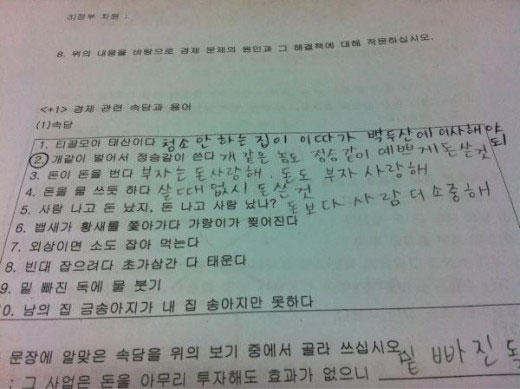 3)정부 차원 :
8. 위의 내용을 바탕으로 경제 문제의 원인과 그 해결책에 대해 작문하십시오.
<+1> 경제 관련 속담과 용어
(1)속담
1. 티끌모아 태산이다 청소 안 하는 집이 이따가 백두산에 이사해야 되
2. 개같이 벌어서 정승같이 쓴다 개 같은 놈도 정승같이 예쁘게 돈쓴 것
3. 돈이 돈을 번다 부자는 돈사랑해. 돈도 부자 사랑해
4. 돈을 물 쓰듯 하다 살 때 없시 돈쓴 것
5. 사람 나고 돈 났지, 돈 나고 사람 났나? 돈보다 사람 더 소중해
6. 뱁새가 황새를 쫓아가다 가랑이가 찢어진다
7. 외상이면 소도 잡아 먹는다
8. 빈대 잡으려다 초가삼간 다 태운다
9. 밑 빠진 독에 물 붓기
0. 남의 집 금송아지가 내 집 송아지만 못하다
문장에 알맞은 속담을 위의 보기 중에서 골라 쓰십시오.
: 그 사업은 돈을 아무리 투자해도 효과가 없으니 밑 빠진 독